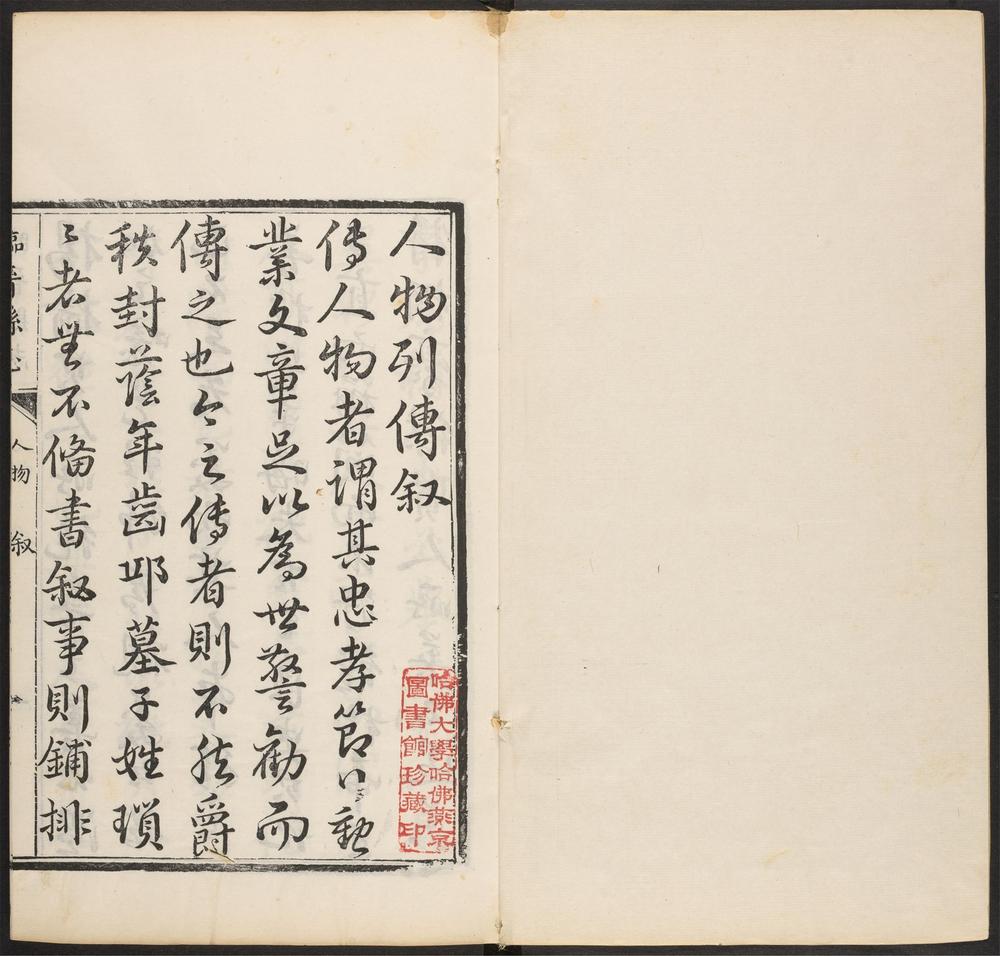 人物列傳叙
傳人物者謂其忠孝節以勳
業文章足以為世警勸而
傳之也今之傳者則不然爵
秩封蔭年齒邱墓子姓瑣
〻者無不備書叙事則鋪排
臨晉縣志
人物 叙
哈佛大學哈佛燕京
圖書館珍藏印